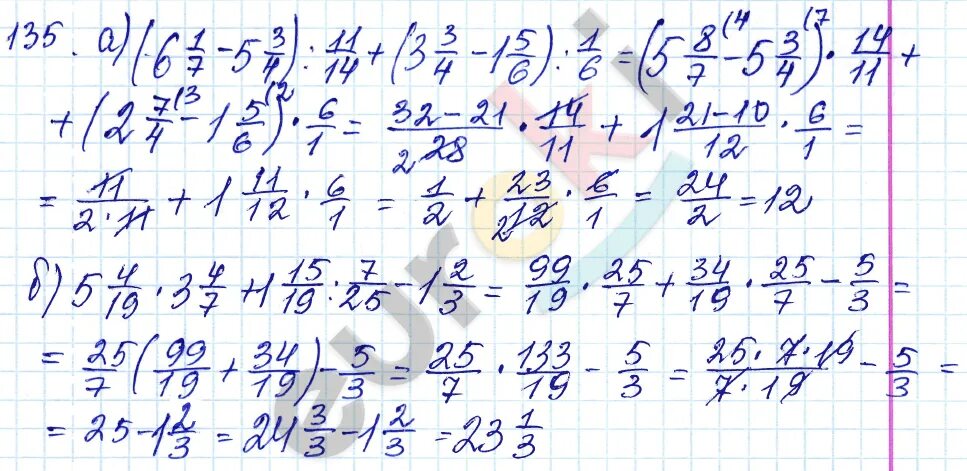 135. а) (6 1/7 - 5 3/4) : 11/14 + (3 3/4 - 1 5/6) : 1/6 = (5 8/7 (4 - 5 3/4 (7) · 14/11 +
+ (2 7/4 (3 - 1 5/6 (2) · 6/1 = 32-21/28 2 · 14/11 + 1 21-10/12 · 6/1 =
= 11/2·11 + 1 11/12 · 6/1 = 1/2 + 23/12 2 · 6/1 = 24/2 = 12
б) 5 4/19 · 3 4/7 + 1 15/19 : 7/25 - 1 2/3 = 99/19 · 25/7 + 34/19 · 25/7 - 5/3 =
= 25/7 (99/19 + 34/19) - 5/3 = 25/7 · 133/19 - 5/3 = 25·7·19/7·19 - 5/3 =
= 25 - 1 2/3 = 24 3/3 - 1 2/3 = 23 1/3
euroki